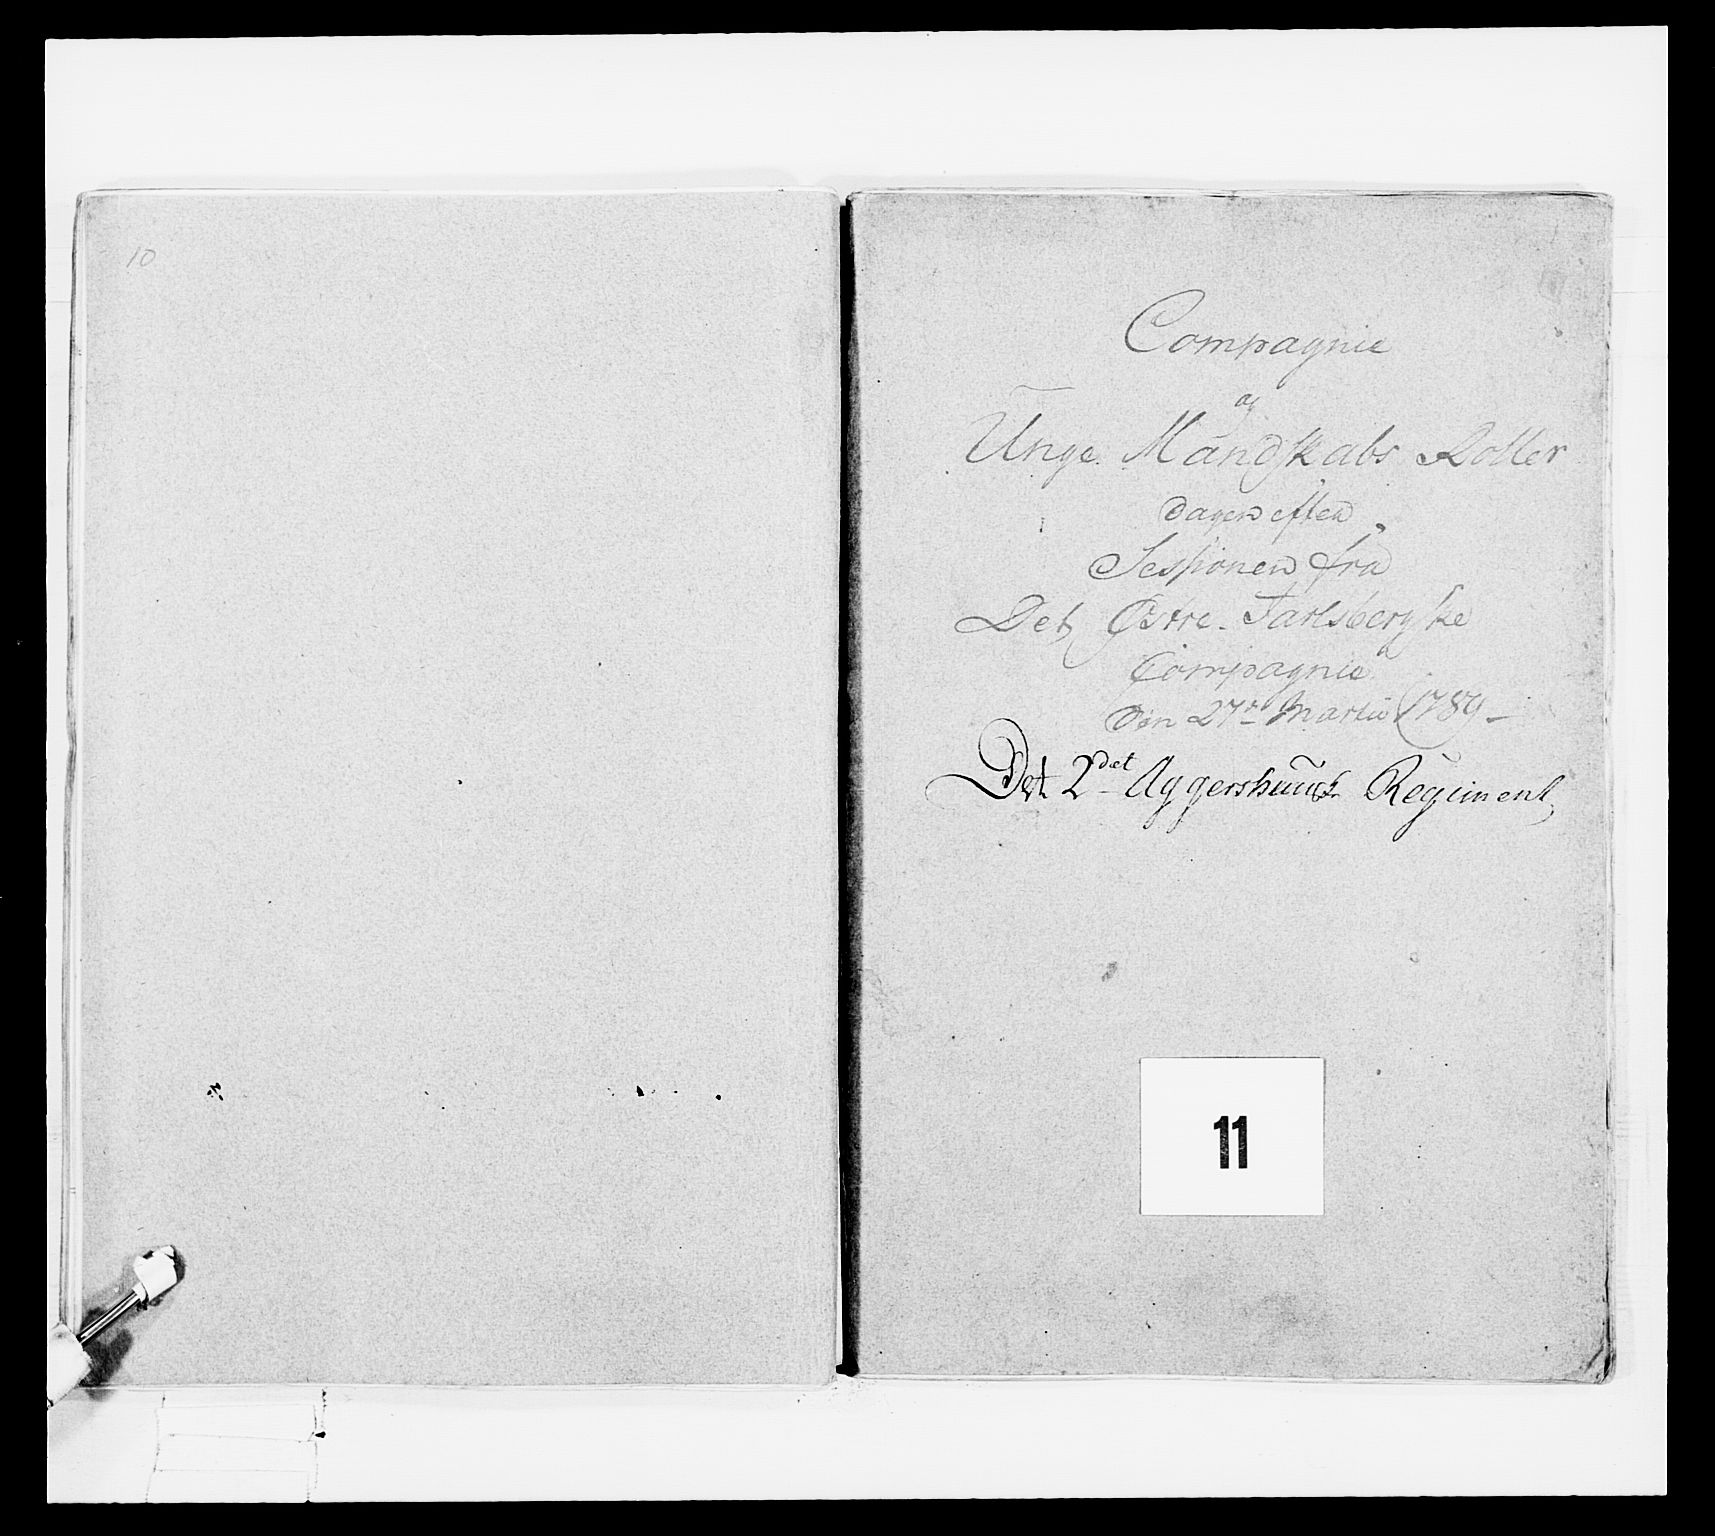 10
Compagnie
og
Unge Mandskabs Roller
Dagen efter
Sessionen fra
Det Østre Jarlsbergske
Compagnie
Den 27de Martii 1789
Det 2det Aggershuus Regiment
11